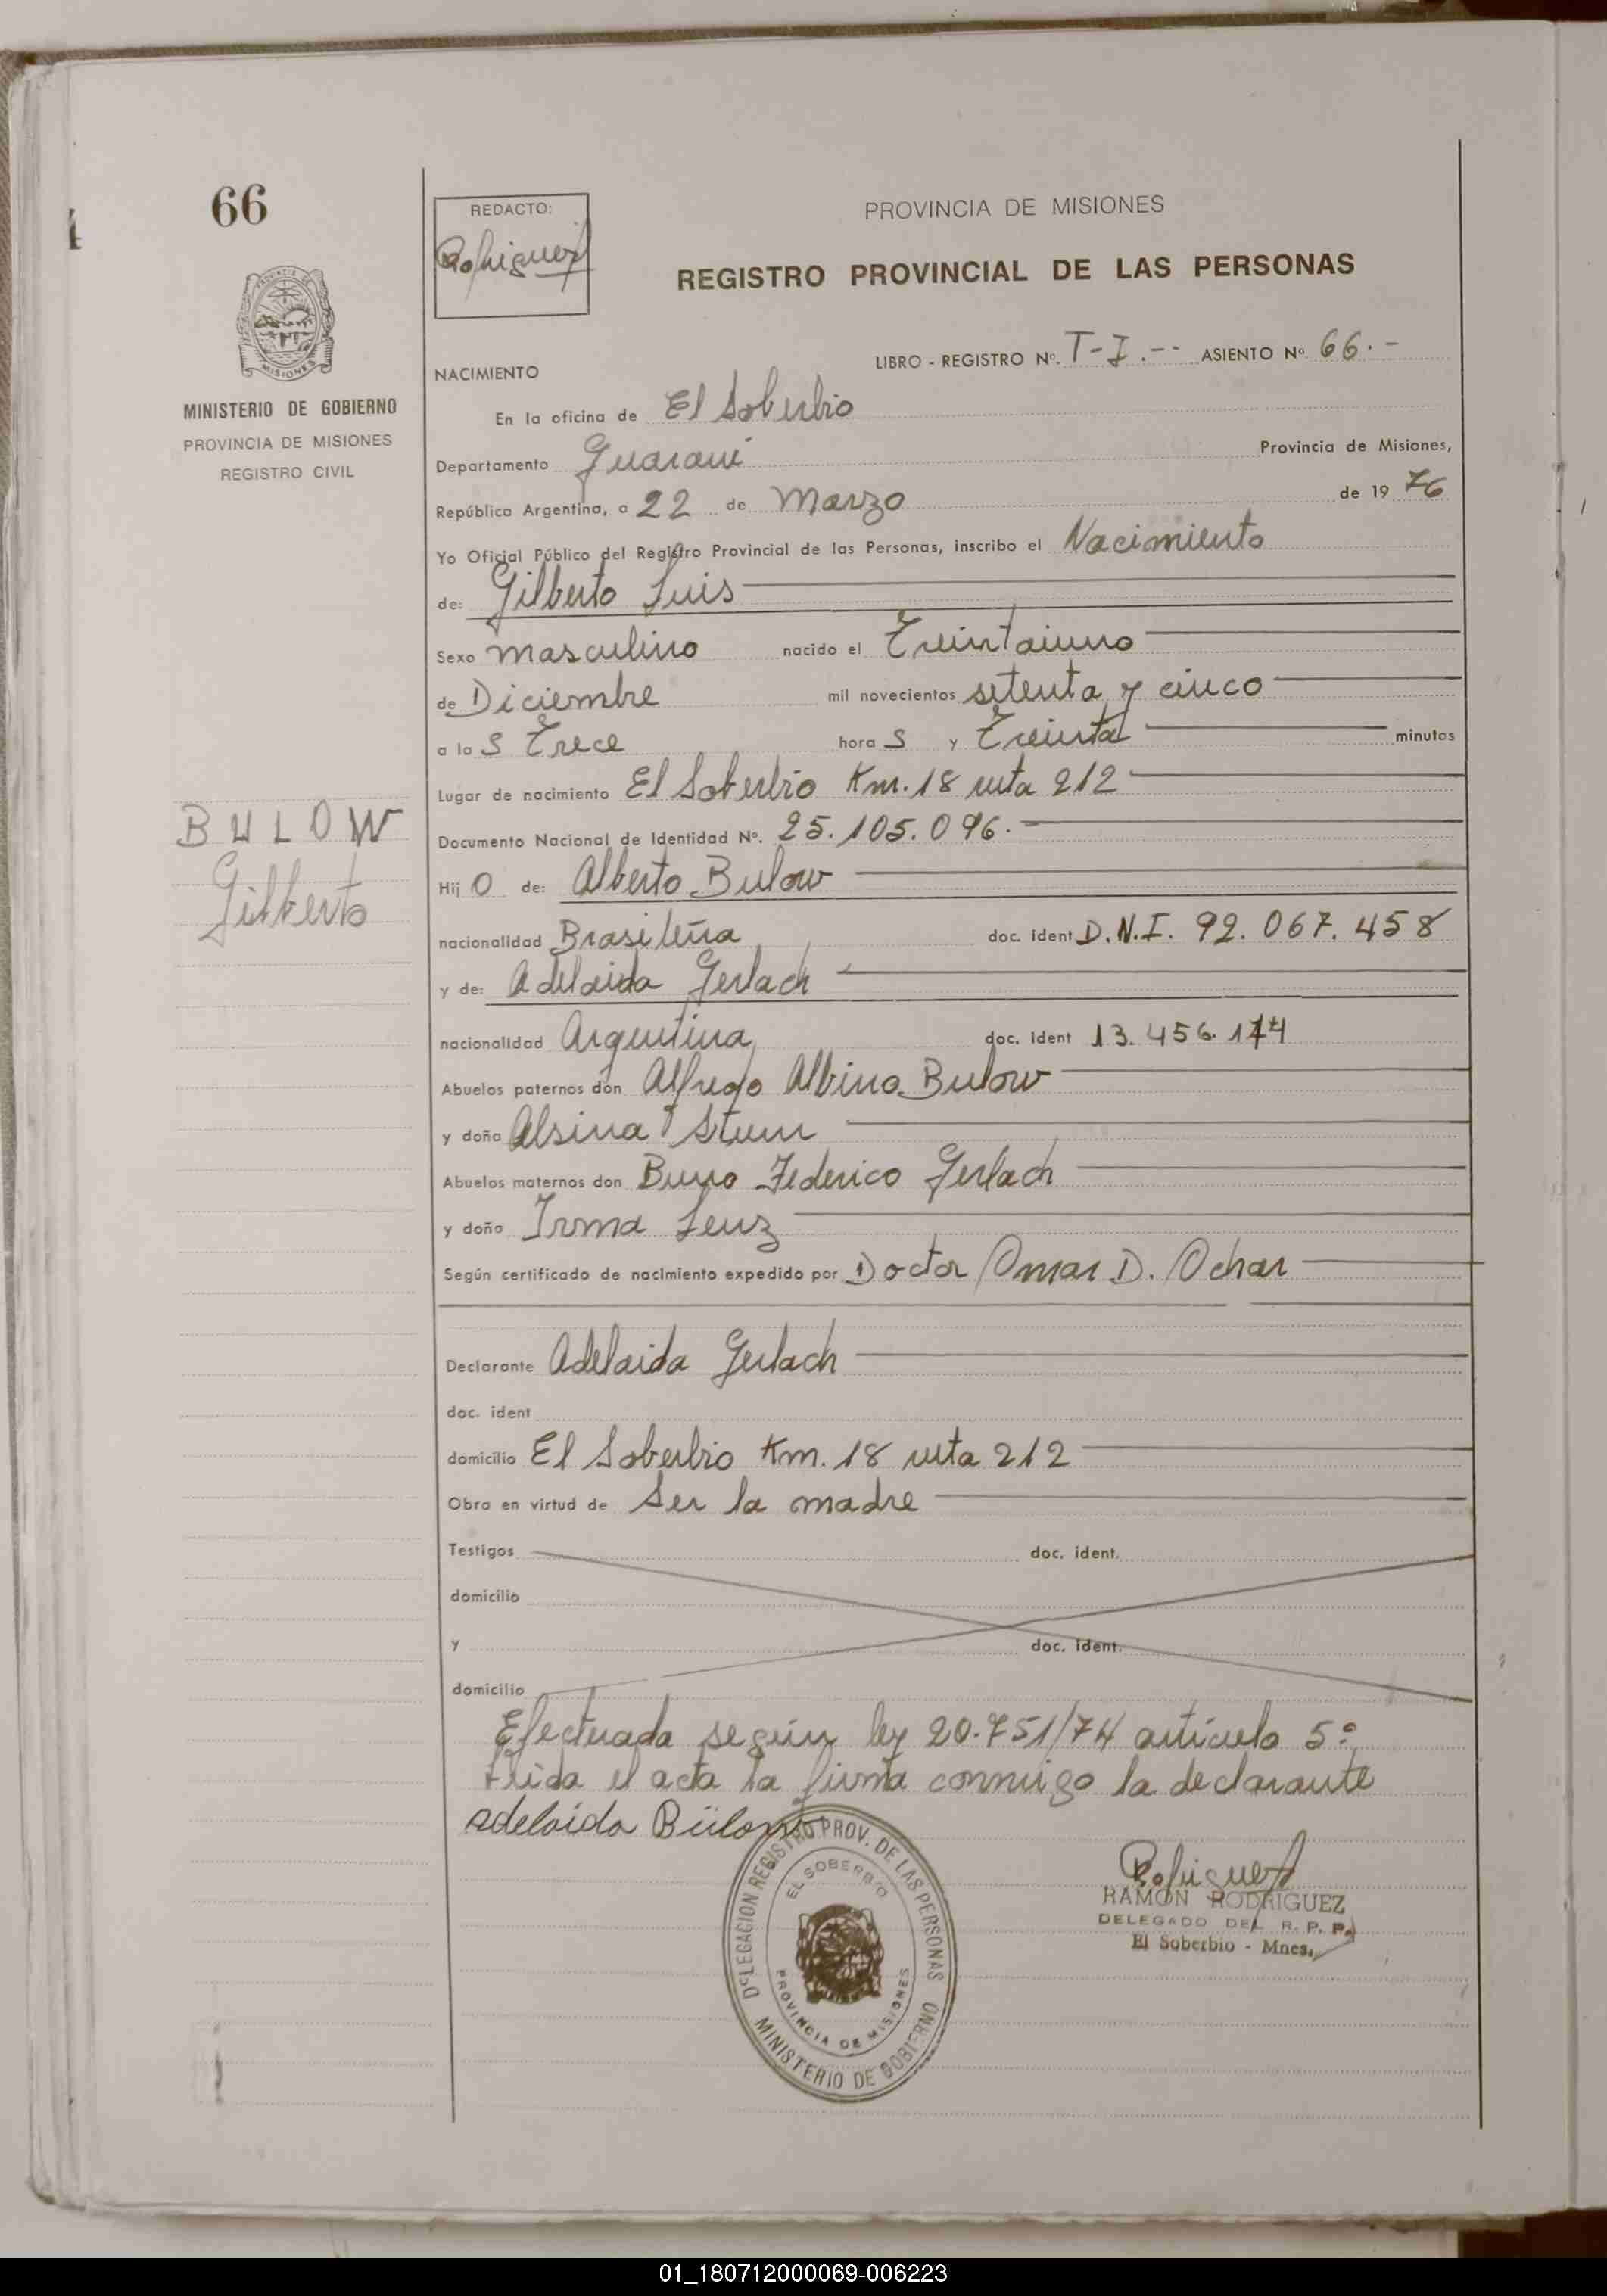 66
MINISTERIO DE GOBIERNO
PROVINCIA DE MISIONES
REGISTRO CIVIL
BULOW
Gilberto
REDACTO:
PROVINCIA DE MISIONES
REGISTRO PROVINCIAL DE LAS PERSONAS
LIBRO - REGISTRO Nº. T-I.-- ASIENTO Nº 66.-
NACIMIENTO
En la oficina de El Soberbio
Departamento Guaraní Provincia de Misiones,
República Argentina, a 22 de Marzo de 1976
Yo Oficial Público del Registro Provincial de las Personas, inscribo el Nacimiento
de: Gilberto Luis
Sexo masculino nacido el Treintaiuno
de Diciembre mil novecientos setenta y cinco
a las Trece horas y Treinta minutos
Lugar de nacimiento El Soberbio Km. 18 ruta 212
Documento Nacional de Identidad Nº. 25.105.096.
Hijo de: Alberto Bulow
nacionalidad Brasileña doc. ident D.N.I. 92.067.458
y de: Adelaida Gerlach
nacionalidad Argentina doc. ident 13.456.174
Abuelos paternos don Alfredo Albino Bulow
y doña Alsina Sturm
Abuelos maternos don Bruno Federico Gerlach
y doña Irma Lenz
Según certificado de nacimiento expedido por Doctor Omar D. Ochar
Declarante Adelaida Gerlach
doc. ident
domicilio El Soberbio Km. 18 ruta 212
Obra en virtud de Ser la madre
Testigos doc. ident.
domicilio
y doc. ident.
domicilio
Efectuada según ley 20.751/74 artículo 5º
Leída el acta la firma conmigo la declarante
Adelaida Bülow
DELEGACION REGISTRO PROV. DE LAS PERSONAS
EL SOBERBIO
PROVINCIA DE MISIONES
MINISTERIO DE GOBIERNO
RAMON RODRIGUEZ
DELEGADO DEL R. P. P.
El Soberbio - Mnes.
01_180712000069-006223